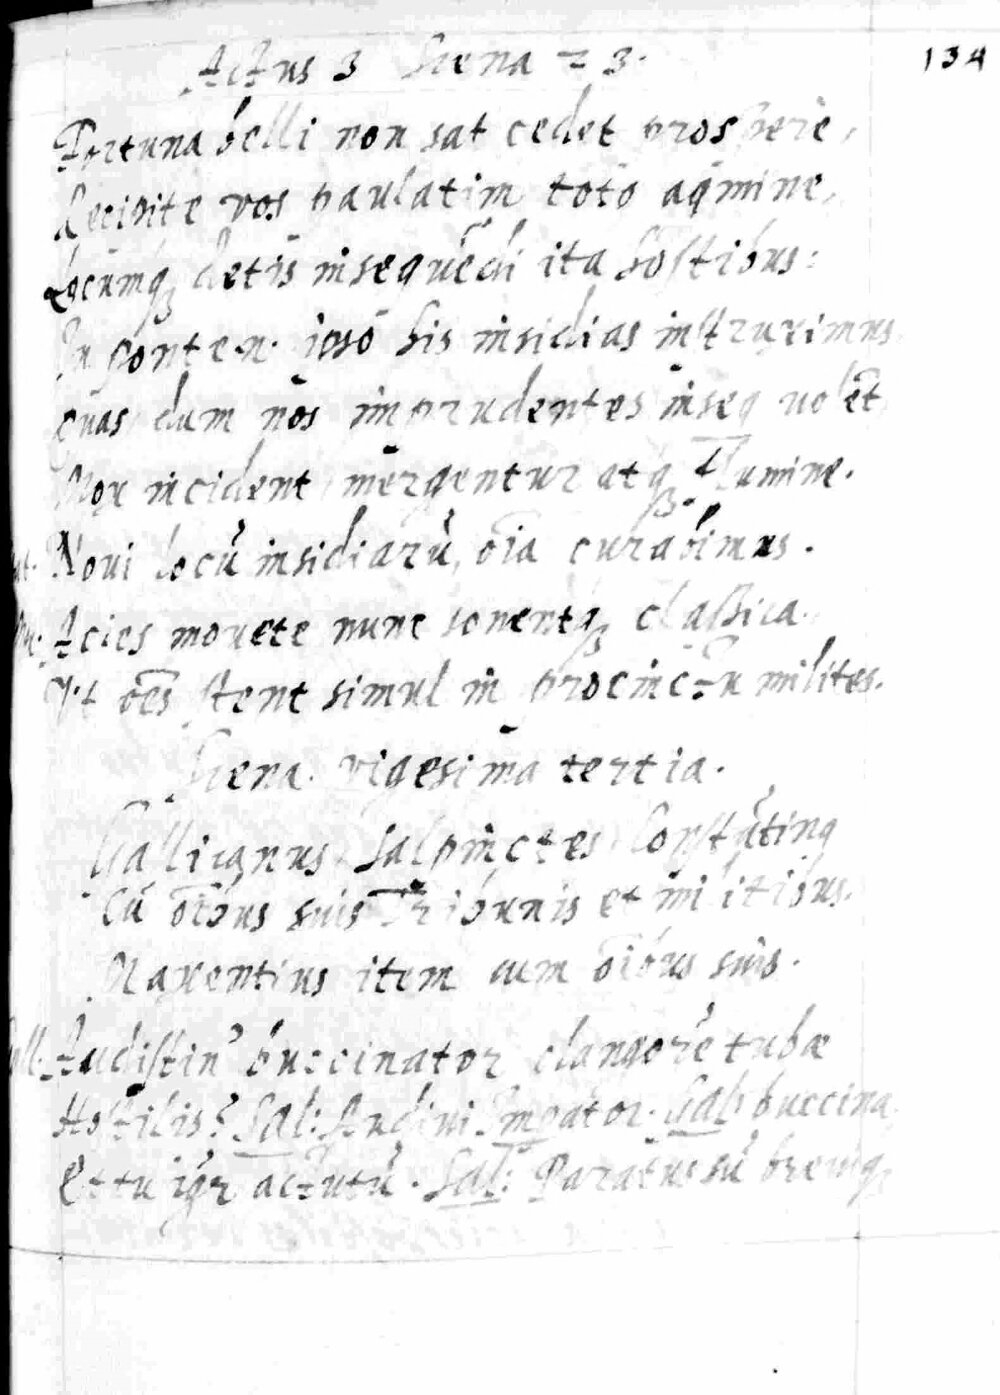 Actus 3 Scena 23.
134
Fortuna belli non sat cedet prospere,
Recipite vos paulatim toto agmine,
Locumq; detis insequēdi ita hostibus:
In ponte.n. ipso his insidias instruximus
quas dum nos imprudentes inseq volēt
Mox incident, mergentur atq; Flumine.
Noui locū insidiarū, oīa curabimus.
Acies mouete nunc sonentq; classica.
Vt oēs stent simul in procinctu milites.
Scena vigesima tertia.
Gallicanus Salpinctes Constātinq
Cū oībus suis Tribunis et militibus.
Maxentius item cum oībus suis.
Gall. Audistin' buccinator clangorē tubæ
Hostilis? Sal: Audiui Impator. Gal: buccina
Et tu igr actutū. Sal: Paratus sū breuiq;